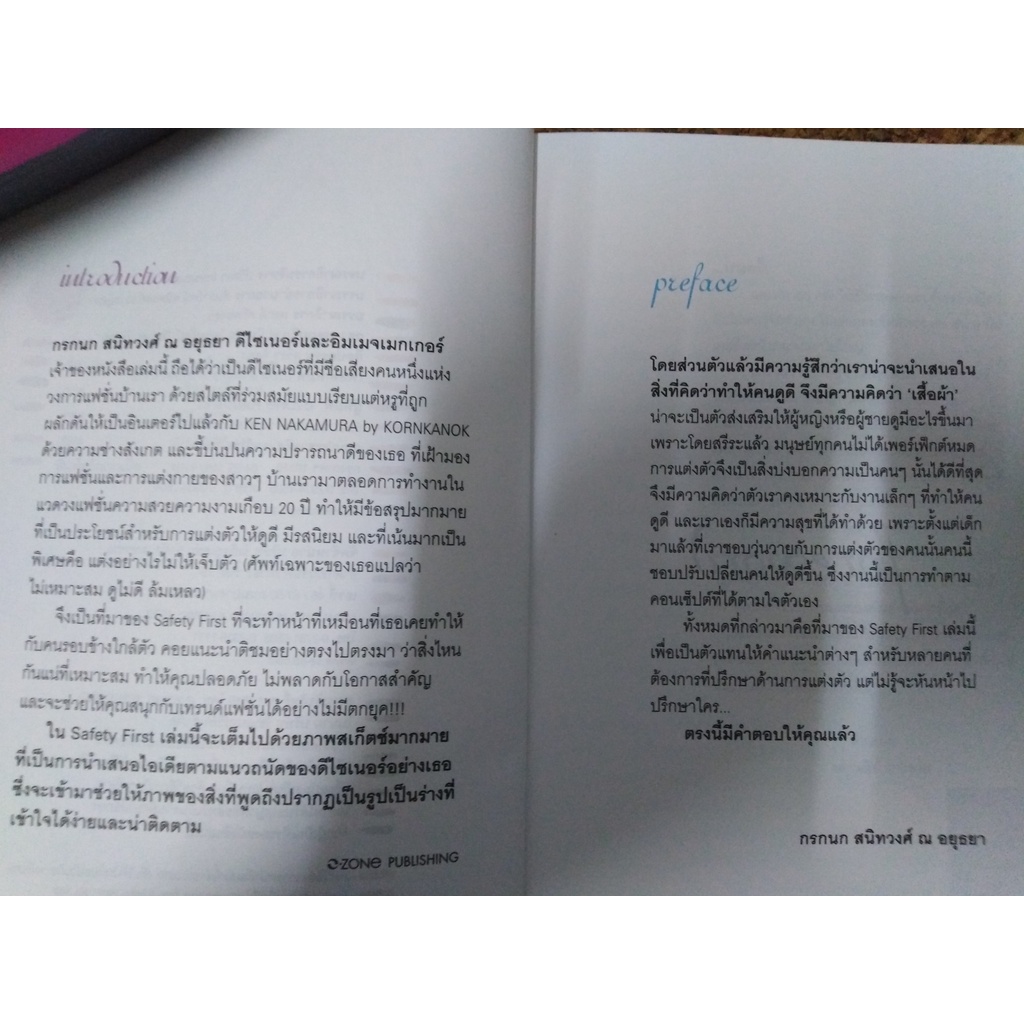 introduction
กรกนก สนิทวงศ์ ณ อยุธยา ดีไซเนอร์และอิมเมจเมกเกอร์
เจ้าของหนังสือเล่มนี้ ถือได้ว่าเป็นดีไซเนอร์ที่มีชื่อเสียงคนหนึ่งแห่ง
วงการแฟชั่นบ้านเรา ด้วยสไตล์ที่ร่วมสมัยแบบเรียบแต่หรูที่ถูก
ผลักดันให้เป็นอินเตอร์ไปแล้วกับ KEN NAKAMURA by KORNKANOK
ด้วยความช่างสังเกต และขี้บ่นปนความปรารถนาดีของเธอ ที่เฝ้ามอง
การแฟชั่นและการแต่งกายของสาวๆ บ้านเรามาตลอดการทำงานใน
แวดวงแฟชั่นความสวยความงามเกือบ 20 ปี ทำให้มีข้อสรุปมากมาย
ที่เป็นประโยชน์สำหรับการแต่งตัวให้ดูดี มีรสนิยม และที่เน้นมากเป็น
พิเศษคือ แต่งอย่างไรไม่ให้เจ็บตัว (ศัพท์เฉพาะของเธอแปลว่า
ไม่เหมาะสม ดูไม่ดี ล้มเหลว)
จึงเป็นที่มาของ Safety First ที่จะทำหน้าที่เหมือนที่เธอเคยทำให้
กับคนรอบข้างใกล้ตัว คอยแนะนำติชมอย่างตรงไปตรงมา ว่าสิ่งไหน
กันแน่ที่เหมาะสม ทำให้คุณปลอดภัย ไม่พลาดกับโอกาสสำคัญ
และจะช่วยให้คุณสนุกกับเทรนด์แฟชั่นได้อย่างไม่มีตกยุค!!!
ใน Safety First เล่มนี้จะเต็มไปด้วยภาพสเก็ตซ์มากมาย
ที่เป็นการนำเสนอไอเดียตามแนวถนัดของดีไซเนอร์อย่างเธอ
ซึ่งจะเข้ามาช่วยให้ภาพของสิ่งที่พูดถึงปรากฏเป็นรูปเป็นร่างที่
เข้าใจได้ง่ายและน่าติดตาม
e-ZONE PUBLISHING
preface
โดยส่วนตัวแล้วมีความรู้สึกว่าเราน่าจะนำเสนอใน
สิ่งที่คิดว่าทำให้คนดูดี จึงมีความคิดว่า ‘เสื้อผ้า’
น่าจะเป็นตัวส่งเสริมให้ผู้หญิงหรือผู้ชายดูมีอะไรขึ้นมา
เพราะโดยสรีระแล้ว มนุษย์ทุกคนไม่ได้เพอร์เฟ็กต์หมด
การแต่งตัวจึงเป็นสิ่งบ่งบอกความเป็นคนๆ นั้นได้ดีที่สุด
จึงมีความคิดว่าตัวเราคงเหมาะกับงานเล็กๆ ที่ทำให้คน
ดูดี และเราเองก็มีความสุขที่ได้ทำด้วย เพราะตั้งแต่เด็ก
มาแล้วที่เราชอบวุ่นวายกับการแต่งตัวของคนนั้นคนนี้
ชอบปรับเปลี่ยนคนให้ดูดีขึ้น ซึ่งงานนี้เป็นการทำตาม
คอนเซ็ปต์ที่ได้ตามใจตัวเอง
ทั้งหมดที่กล่าวมาคือที่มาของ Safety First เล่มนี้
เพื่อเป็นตัวแทนให้คำแนะนำต่างๆ สำหรับหลายคนที่
ต้องการที่ปรึกษาด้านการแต่งตัว แต่ไม่รู้จะหันหน้าไป
ปรึกษาใคร...
ตรงนี้มีคำตอบให้คุณแล้ว
กรกนก สนิทวงศ์ ณ อยุธยา